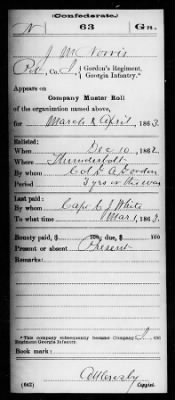 (Confederate.)
N 63 Ga.
J. M. Norris
Pvt, Co. I, Gordon's Regiment, Georgia Infantry.*
Appears on
Company Muster Roll
of the organization named above,
for March & April, 1863.
Enlisted:
When Dec 10, 1862.
Where Thunderbolt
By whom Col. G. A. Gordon
Period 3 yrs or the war
Last paid:
By whom Capt. C. J. White
To what time Mar 1, 1863.
Bounty paid, $ 100; due, $ 100
Present or absent Present
Remarks:
*This company subsequently became Company I, 63d
Regiment Georgia Infantry.
Book mark:
(642) Copyist.